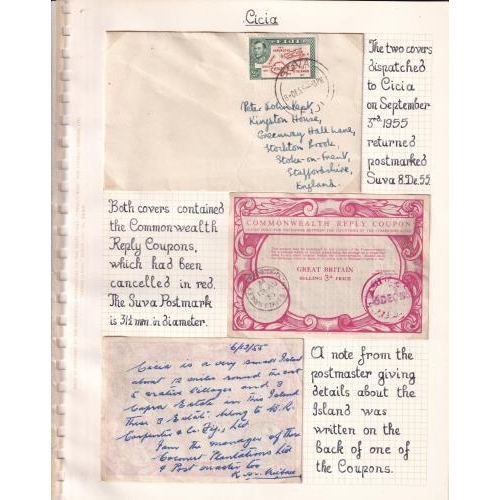 Cicia
FIJI
The two covers
dispatched
to Cicia
on September
3rd 1955
returned
postmarked
Suva 8.De.55.
Peter
Kingston House,
Greenway Hall Lane,
Stockton Brook,
Stoke-on-Trent,
Staffordshire,
England.
Both covers contained
the Commonwealth
Reply Coupons,
which had been
cancelled in red.
The Suva Postmark
is 31½ mm. in diameter.
COMMONWEALTH REPLY COUPON
GREAT BRITAIN
SELLING 3d PRICE
6/12/55
Cicia is a very small Island
about 12 miles round the coast
5 native villages and 3
Copra Estate on this Island
These 3 Estate belong to W.R.
Carpenter & Co. Fiji, Ltd
I am the manager of the
Coconut Plantations Ltd
& Post master too
A note from the
postmaster giving
details about the
Island was
written on the
back of one of
the Coupons.